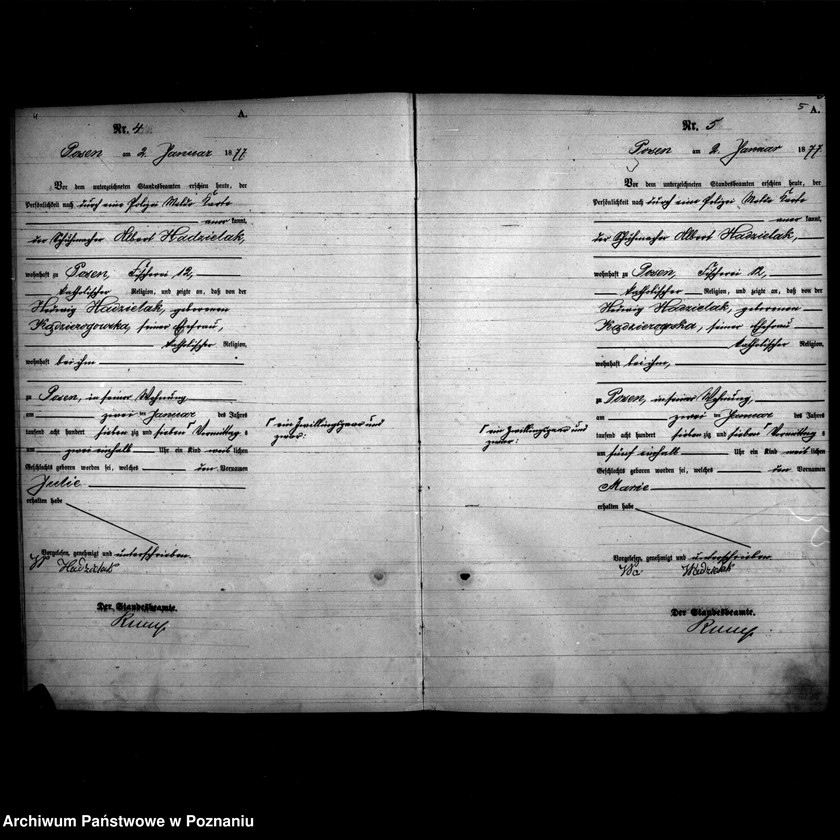 4
A.
Nr. 4
Posen am 2. Januar 1877
Vor dem unterzeichneten Standesbeamten erschien heute, der
Persönlichkeit nach durch eine Polizei Melde Karte
aner kannt,
der Schuhmacher Albert Hadzielak,
wohnhaft zu Posen, Fischerei 12,
katholischer Religion, und zeigte an, daß von der
Hedwig Hadzielak, geborenen
seiner Ehefrau,
katholischer Religion,
wohnhaft bei ihm
zu Posen, in seiner Wohnung
am zwei ten Januar des Jahres
tausend acht hundert sieben zig und sieben Vormittags
um zwei einhalb Uhr ein Kind weib lichen
Geschlechts geboren worden sei, welches den Vornamen
Julie
erhalten habe
Vorgelesen, genehmigt und unterschrieben.
Hadzielak
Der Standesbeamte.
ein Zwillingspaar und
zwar:
5
A.
Nr. 5
Posen am 2. Januar 1877.
Vor dem unterzeichneten Standesbeamten erschien heute, der
Persönlichkeit nach durch eine Polizei Melde Karte
aner kannt,
der Schuhmacher Albert Hadzielak,
wohnhaft zu Posen, Fischerei 12,
katholischer Religion, und zeigte an, daß von der
Hedwig Hadzielak, geborenen
seiner Ehefrau
katholischer Religion,
wohnhaft bei ihm,
zu Posen, in seiner Wohnung,
am zwei ten Januar des Jahres
tausend acht hundert sieben zig und sieben Vormittags
um fünf einhalb Uhr ein Kind weib lichen
Geschlechts geboren worden sei, welches den Vornamen
Marie
erhalten habe
Vorgelesen, genehmigt und unterschrieben.
Hadzielak
Der Standesbeamte.
ein Zwillingspaar und
zwar:
Archiwum Państwowe w Poznaniu